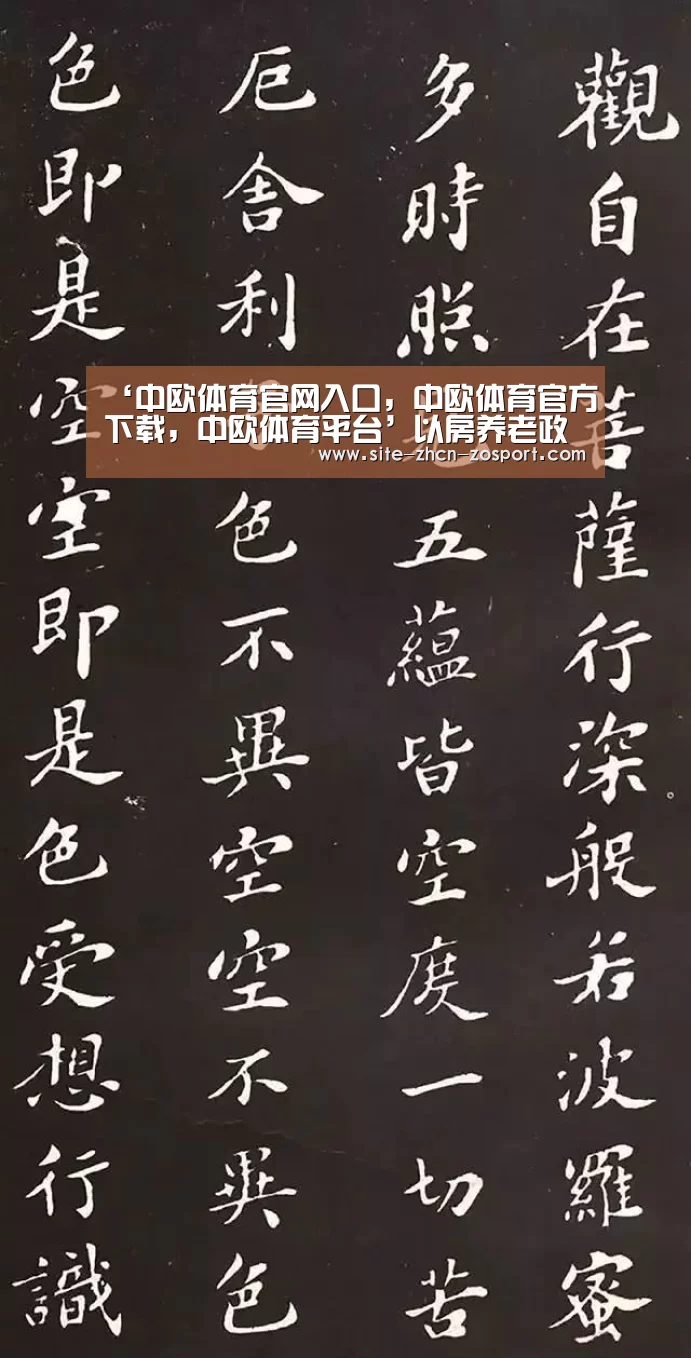 觀自在菩薩行深般若波羅蜜
多時照五蘊皆空度一切苦
厄舍利色不異空空不異色
色即是空空即是色受想行識
‘中欧体育官网入口，中欧体育官方
下载，中欧体育平台’以房养老政
www.site-zhcn-zosport.com